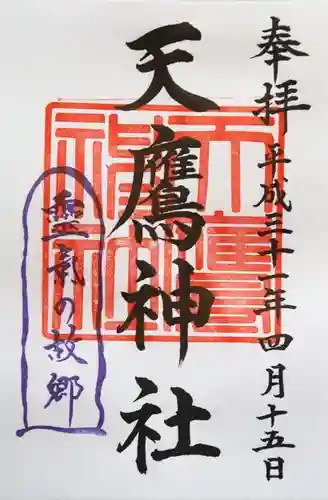 奉拝
平成三十一年四月十五日
天鷹神社
天鷹神社
霊気の故郷